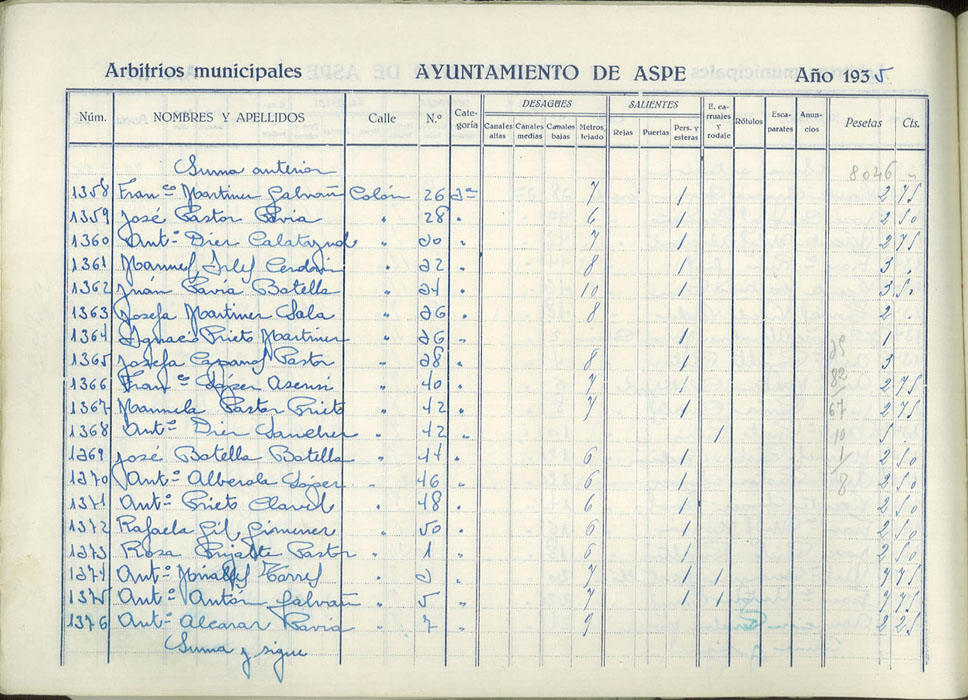 Arbitrios municipales AYUNTAMIENTO DE ASPE Año 1935
Núm. NOMBRES Y APELLIDOS Calle N.º Categoría DESAGÜES Canales altas Canales medias Canales bajas Metros tejado SALIENTES Rejas Puertas Pers. y esteras E. carruajes y rodaje Rótulos Escaparates Anuncios Pesetas Cts.
Suma anterior 8046 "
1358 Fran.co Martinez Galvañ Colón 26 2ª 7 1 2 75
1359 José Pastor Pavia " 28 " 6 1 2 50
1360 Ant.º Diez Calatayud " 20 " 7 1 2 75
1361 Manuel Cerdán " 22 " 8 1 3 "
1362 Juán Pavia Botella " 24 " 10 1 3 50
1363 Josefa Martinez Sala " 26 " 8 2 "
1364 Ignacio Prieto Martinez " 26 " 1 1 "
1365 Josefa Pastor " 28 " 8 1 3 "
1366 Fran.co López Asensi " 40 " 7 1 2 75
1367 Manuela Pastor Prieto " 42 " 7 1 2 75
1368 Ant.º Diez Sanchez " 42 " 1 5 "
1269 José Botella Botella " 44 " 6 1 2 50
1270 Ant.º Alberola López " 46 " 6 1 2 50
1371 Ant.º Prieto Clavel " 48 " 6 1 2 50
1372 Rafaela Gil Gimenez " 50 " 6 1 2 50
1273 Rosa Pastor " 1 " 6 1 2 50
1274 Ant.º Miralles Torres " 3 " 7 1 1 7 75
1375 Ant.º Antón Galvañ " 5 " 7 1 1 7 75
1376 Ant.º Alcaraz Pavia " 7 " 9 2 25
Suma y sigue